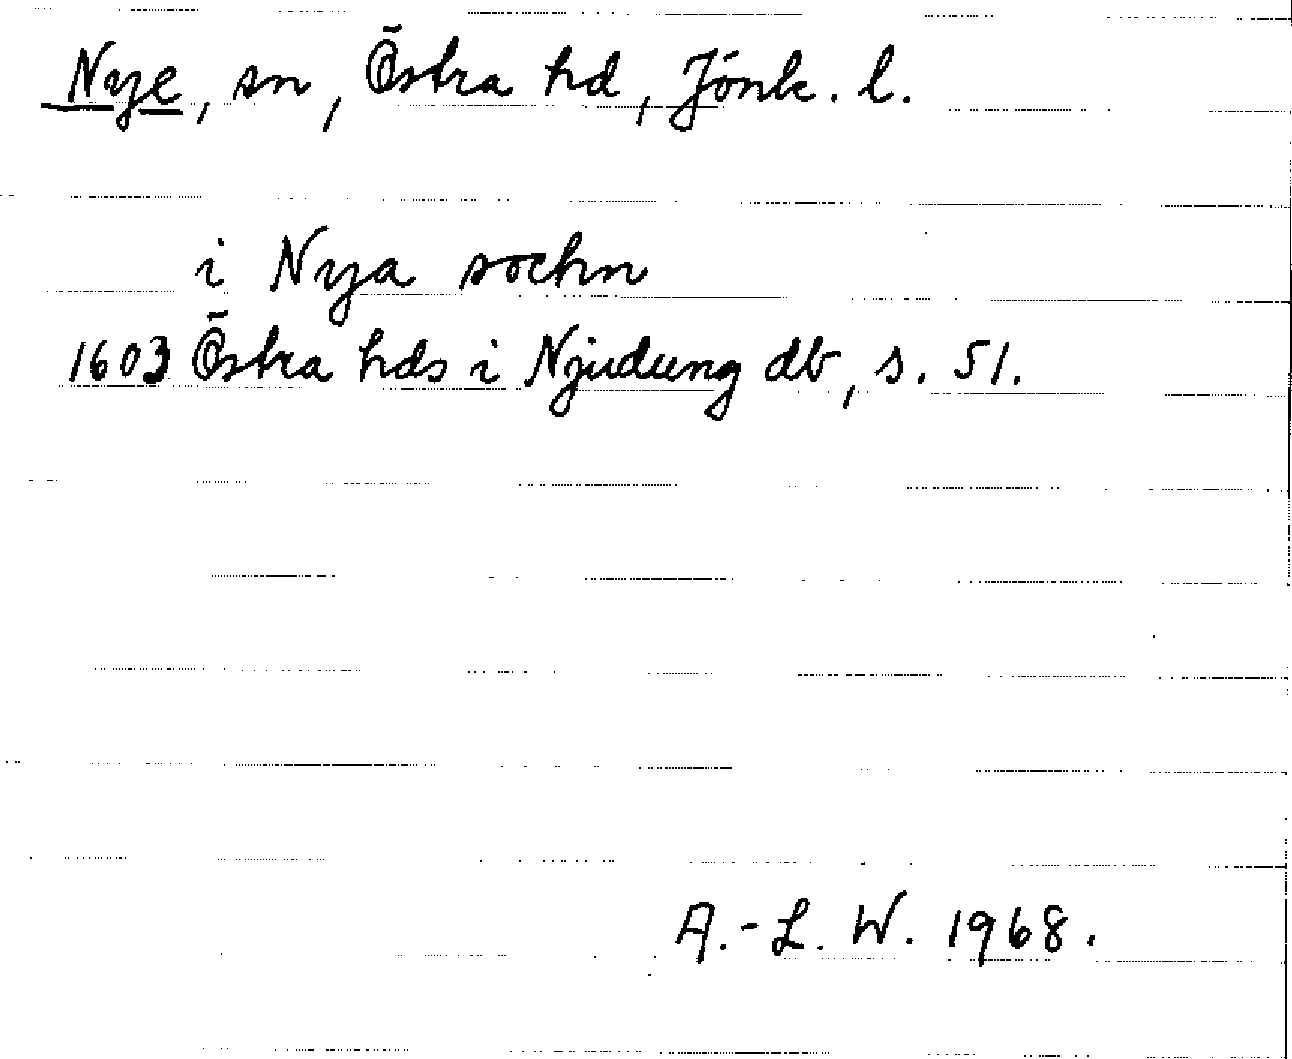 Nye, sn, Östra hd, Jönk. l.
i Nya sochn
1603 Östra hds i Njudung db, s. 51.
A.-L. W. 1968.